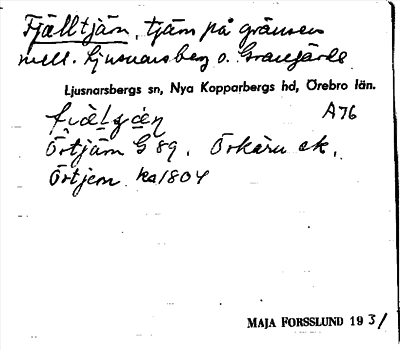 Fjälltjärn, tjärn på gränsen
mell. Ljusnarsberg o. Grangärde
Ljusnarsbergs sn, Nya Kopparbergs hd, Örebro län.
A76
Örtjärn G 89. Örkärn ek.
Örtjern ka 1804
MAJA FORSSLUND 1931